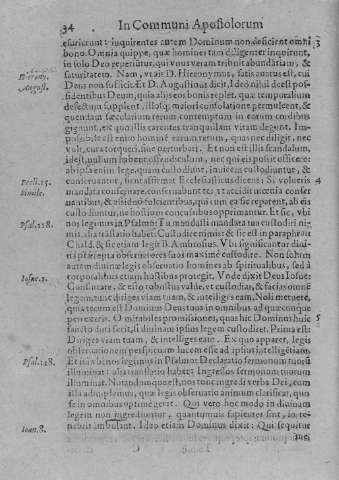 34 In Communi Apostolorum
esurierunt: inquirentes autem Dominum non deficient omni 3
bono. Omnia quippe, quæ homines tam diligenter inquirunt,
in solo Deo reperiütur, qui vnus veram tribuit abundātiam, &
Hierony. saturitatem. Nam, vt ait D. Hieronymus, satis auarus est, cui
August. Deus non sufficit. Et D. Augustinus dicit, Ideò nihil deesse
sidentibus Deum, quia alij eos bonis replet, quæ temporalium
desectum supplent, illosq; maiori consolatione permulcent, &
quendam sæcularium rerum contemptum in eorum cordibus
gignunt, ex quo illis carentes tranquillam vitam degunt. Im-
possibile est enim hominē earum rerum, quas nec diligit, nec
vult, cura torqueri, siue perturbari. Et non est illis scandalum,
idest, nullum habent offendiculum, nec qui eis possit officere:
ab ipsa enim lege, quam custodiunt, inuicem custodiuntur, &
Eccli. 15. conseruantur, sicut affirmat Ecclesiasticus dicens: Si volueris 4
Simile. mandata conseruare, conseruabunt te, ac
custodiuntur, ne hostium concursibus opprimantur. Et sic, vbi
Psal. 118. nos legimus in Psalmo: Tu mandasti mandata tua custodiri ni-
mis, alia translatio habet: Custodire nimis: & sic est in paraphrasi
Chald. & sic etiam legit D. Ambrosius. Vbi significantur diui-
ni præcepta obseruatores suos maximè custodire. Non solum
autem diuinæ legis obseruatio homines ab spiritualibus, sed à
Iosue. 1. corporalibus etiam hostibus protegit. Vnde dixit Deus Iosue:
Confortare, & esto robustus valde, vt custodias, & facias omnē
legem, tunc diriges viam tuam, & intelliges eam. Noli metuere,
quia tecum est Dominus Deus tuus in omnibus ad quæcunque
perrexeris. O mirabiles promissiones, quas hic Dominus huic 5
sancto duci fecit, si diuinam ipsius legem custodiret. Prima est:
Diriges viam tuam, & intelliges eam. Ex quo apparet, legis
obseruationem perspicuam lucem esse ad ipsius intelligētiam.
Psal. 118. Et ita vbi nos legimus in Psalmo: Declaratio sermonum tuorū
illuminat: alia translatio habet: Ingressus sermonum tuorum
illuminat. Notandum que est, nos tunc ingredi verba Dei, cum
illa adimplemus, quæ legis obseruatio animum clarificat, quo
se in omnibus optimè gerat. Qui vero hoc modo in diuinam
legem non ingrediuntur, quantumuis sapientes sint, in te-
Ioan. 8. nebris ambulant. Ideo etiam Dominus dixit: Qui sequitur
me